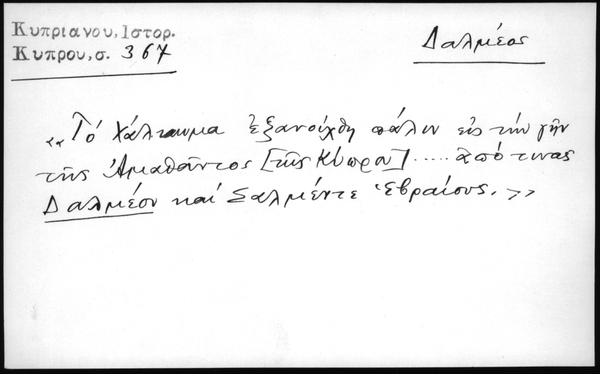 Κυπριανου, Ιστορ.
Κυπρου, σ. 367
Δαλμέος
„Τό χάλκωμα ἐξανοίχθη πάλιν εἰς τήν γῆν
τῆς Ἀμαθοῦντος [τῆς Κύπρου] ..... ἀπό τινας
Δαλμέον καί Σαλμέντε Ἑβραίους.»